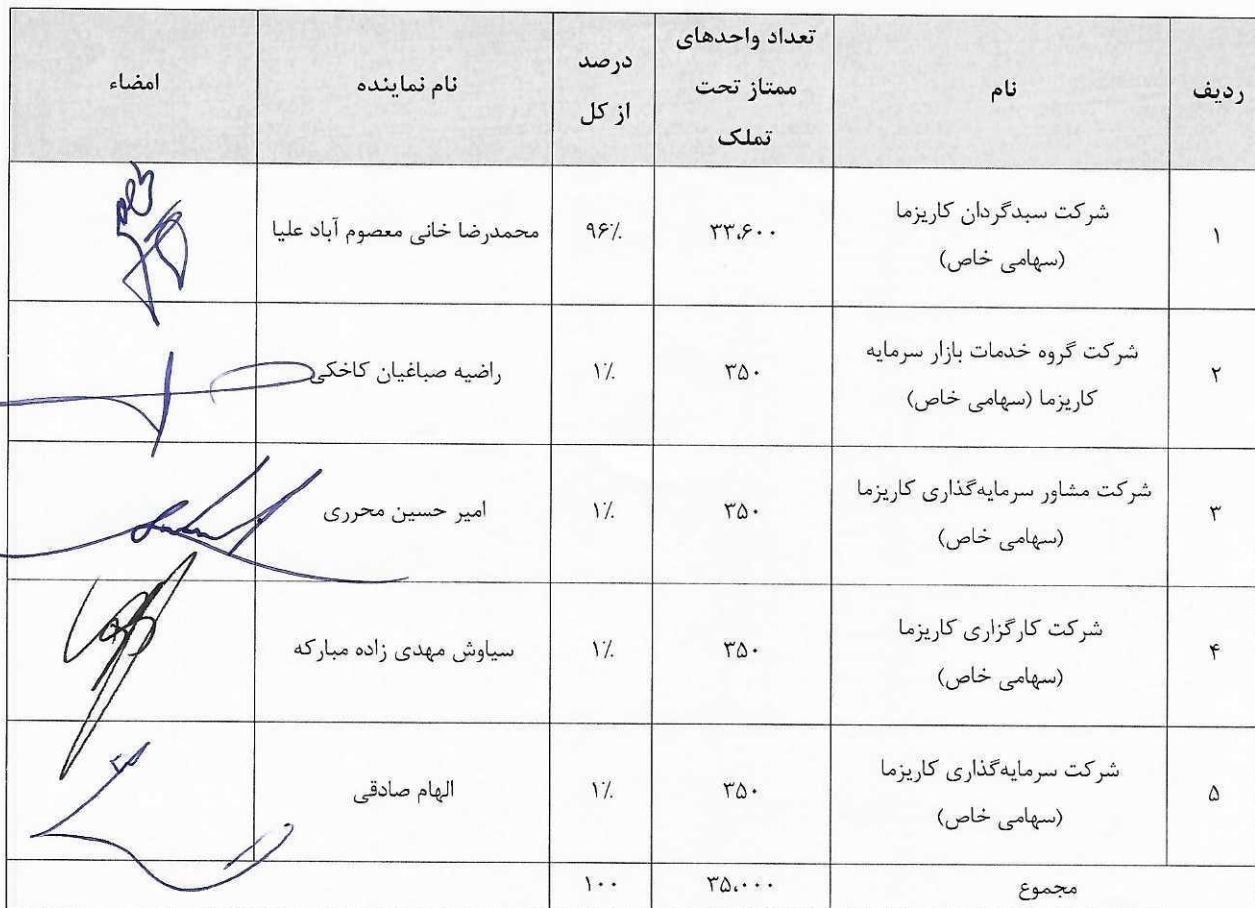 ردیف
نام
تعداد واحدهای
ممتاز تحت
تملک
درصد
از کل
نام نماینده
امضاء
۱
شرکت سبدگردان کاریزما
(سهامی خاص)
۳۳،۶۰۰
۹۶٪
محمدرضا خانی معصوم آباد علیا
۲
شرکت گروه خدمات بازار سرمایه
کاریزما (سهامی خاص)
۳۵۰
۱٪
راضیه صباغیان کاخکی
۳
شرکت مشاور سرمایه‌گذاری کاریزما
(سهامی خاص)
۳۵۰
۱٪
امیر حسین محرری
۴
شرکت کارگزاری کاریزما
(سهامی خاص)
۳۵۰
۱٪
سیاوش مهدی زاده مبارکه
۵
شرکت سرمایه‌گذاری کاریزما
(سهامی خاص)
۳۵۰
۱٪
الهام صادقی
مجموع
۳۵،۰۰۰
۱۰۰